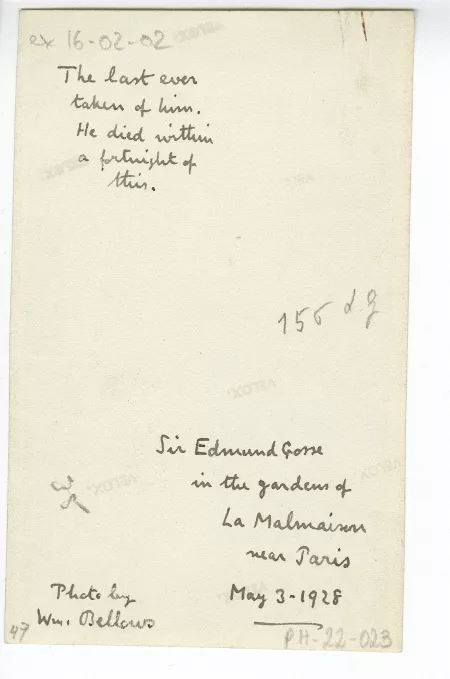 ex 16-02-02
The last ever
taken of him.
He died within
a fortnight of
this.
VELOX
VELOX
156 d.g
VELOX
Sir Edmund Gosse
in the gardens of
VELOX
VELOX
La Malmaison
near Paris
Photo by
May 3-1928
Wm. Bellows
47
PH-22-023